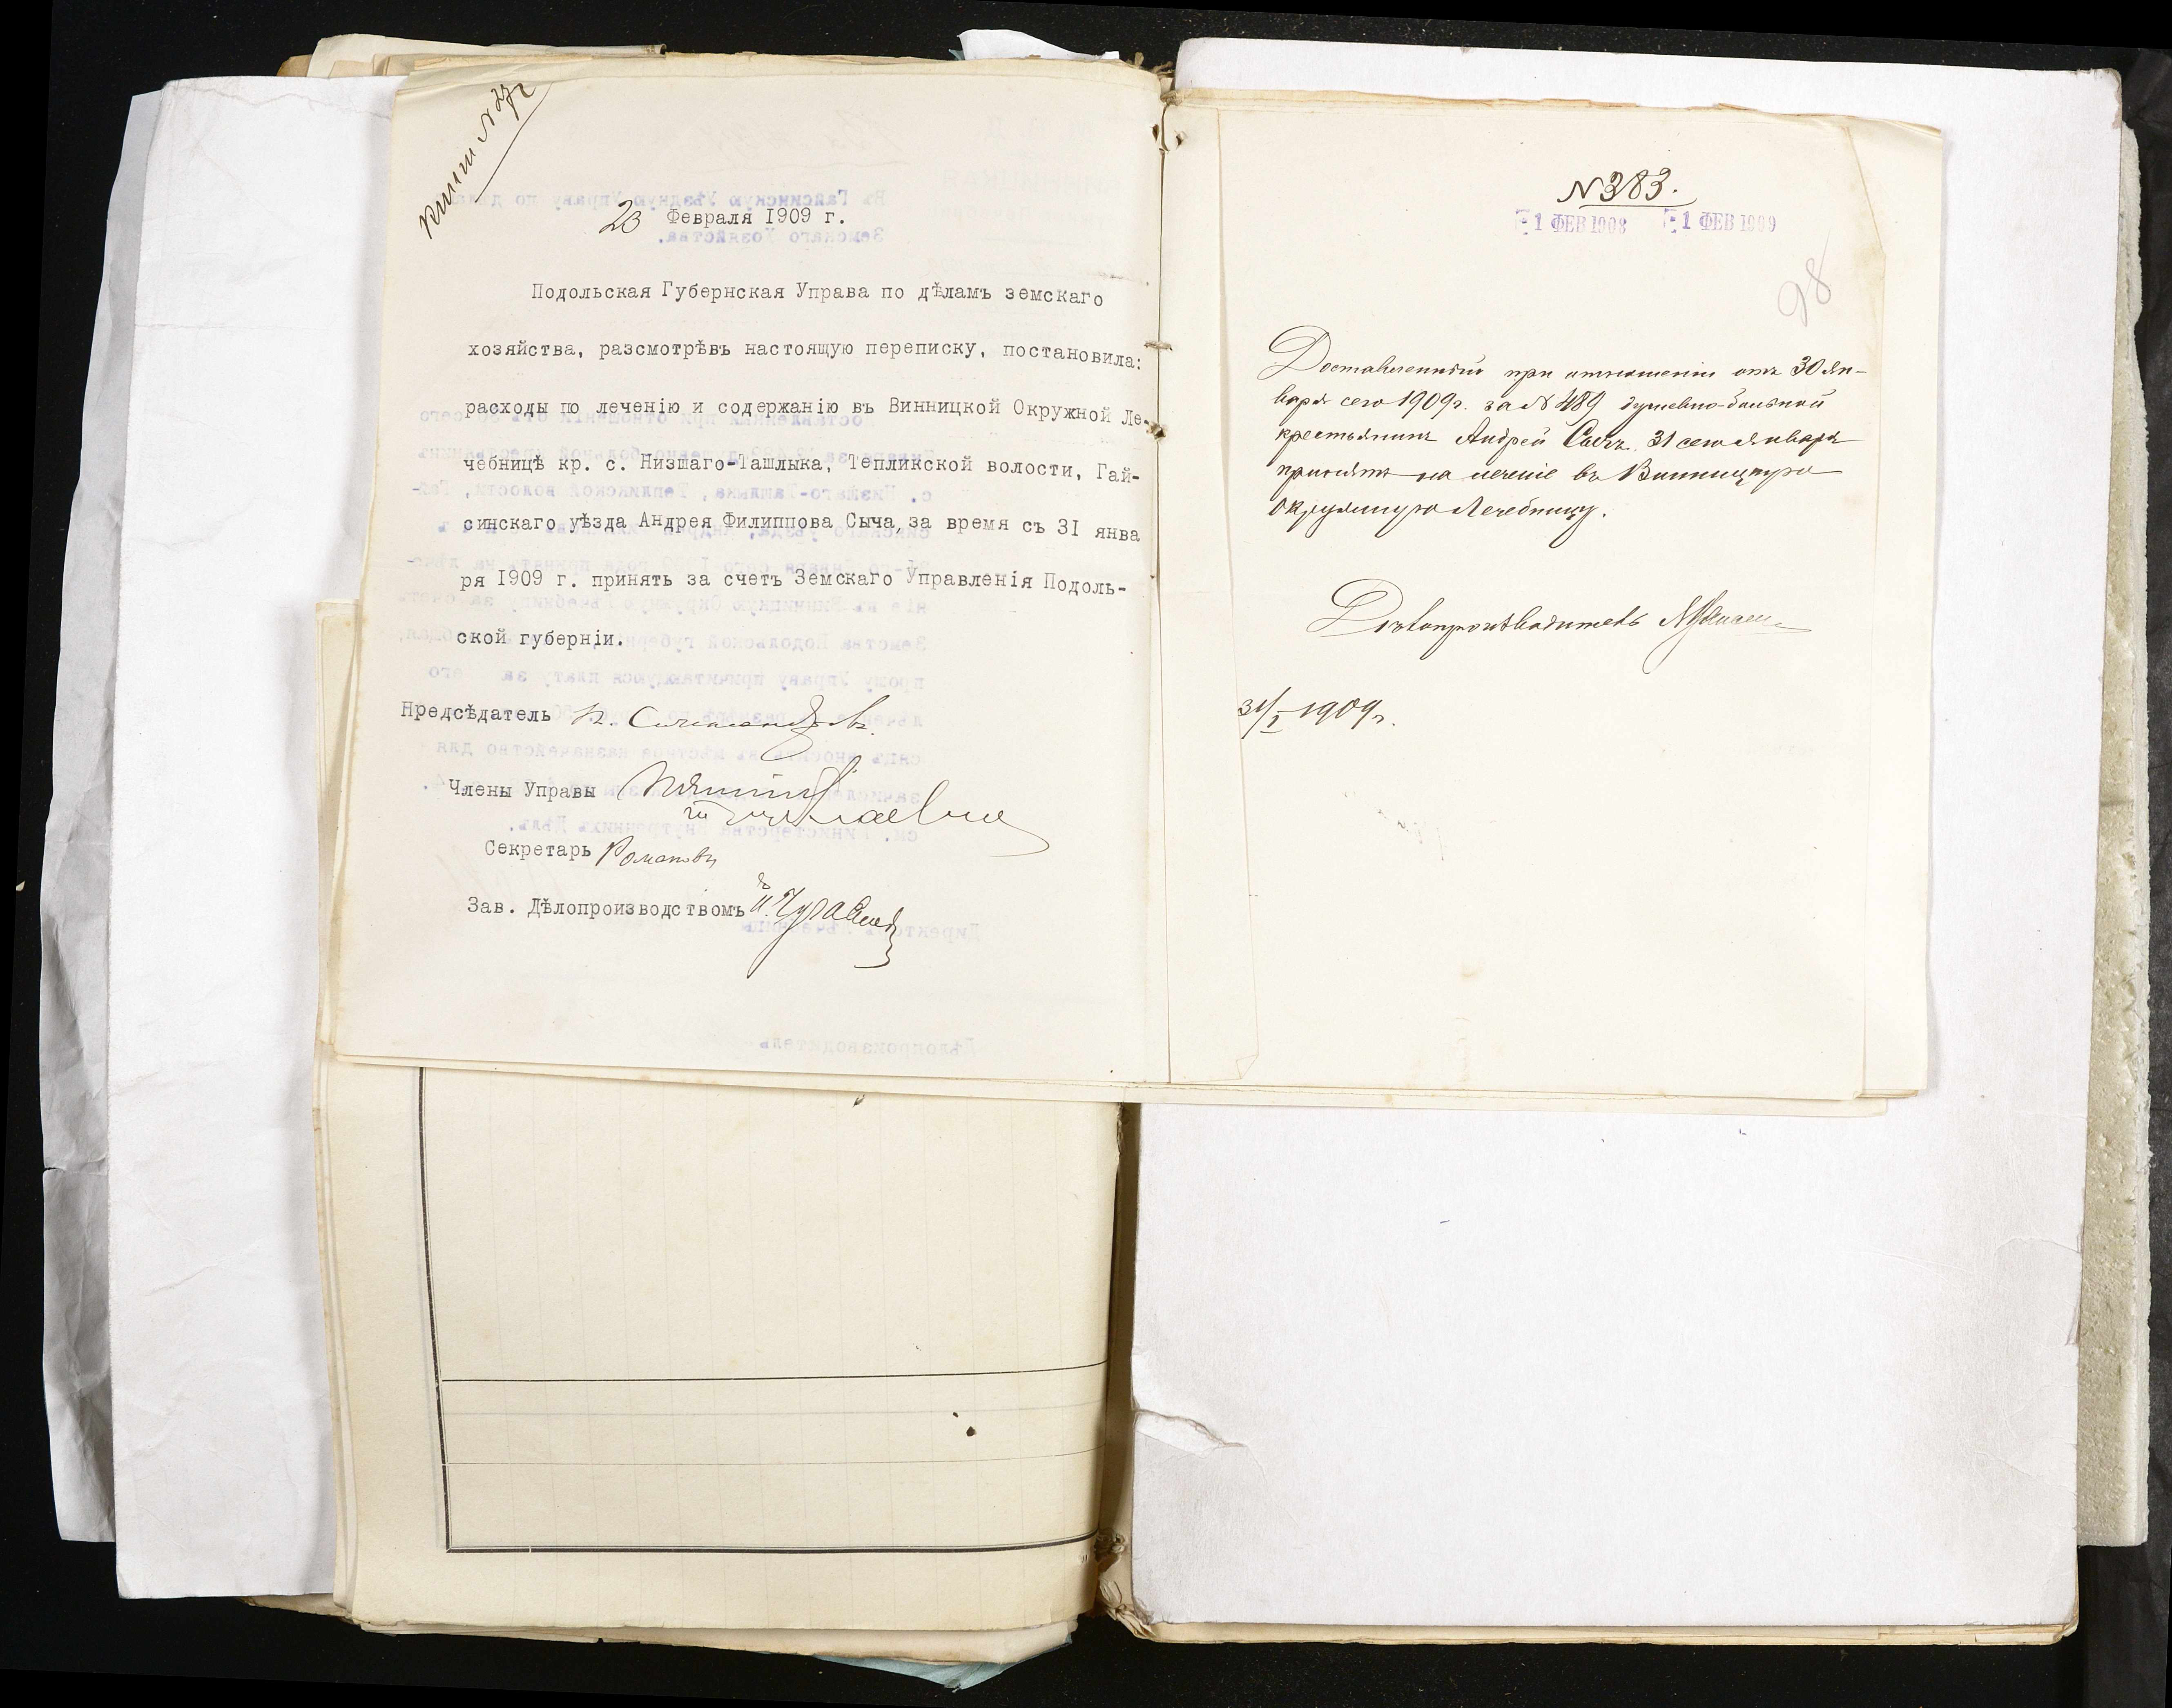 20 Февраля 1909 г.
Подольская Губернская Управа по дѣламъ земскаго
хозяйства, разсмотрѣвъ настоящую переписку, постановила:
расходы по леченію и содержанію въ Винницкой Окружной Ле-
чебницѣ кр. с. Низшаго-Ташлыка, Тепликской волости, Гай-
синскаго уѣзда Андрея Филиппова Сыча, за время съ 31 янва
ря 1909 г. принять за счетъ Земскаго Управленія Подоль-
ской губерніи.
Предсѣдатель
Члены Управы
Секретарь Романовъ
Зав. Дѣлопроизводствомъ
№383.
-1 ФЕВ 1908 -1 ФЕВ 1909
98
Доставленный при отношеніи отъ 30 Ян-
варя сего 1909г. за № 489 душевно-больной
крестьянинъ Андрей Сычъ 31 сего Января
принятъ на леченіе въ Винницкую
Окружную Лечебницу.
Дѣлопроизводитель
31/I 1909г.